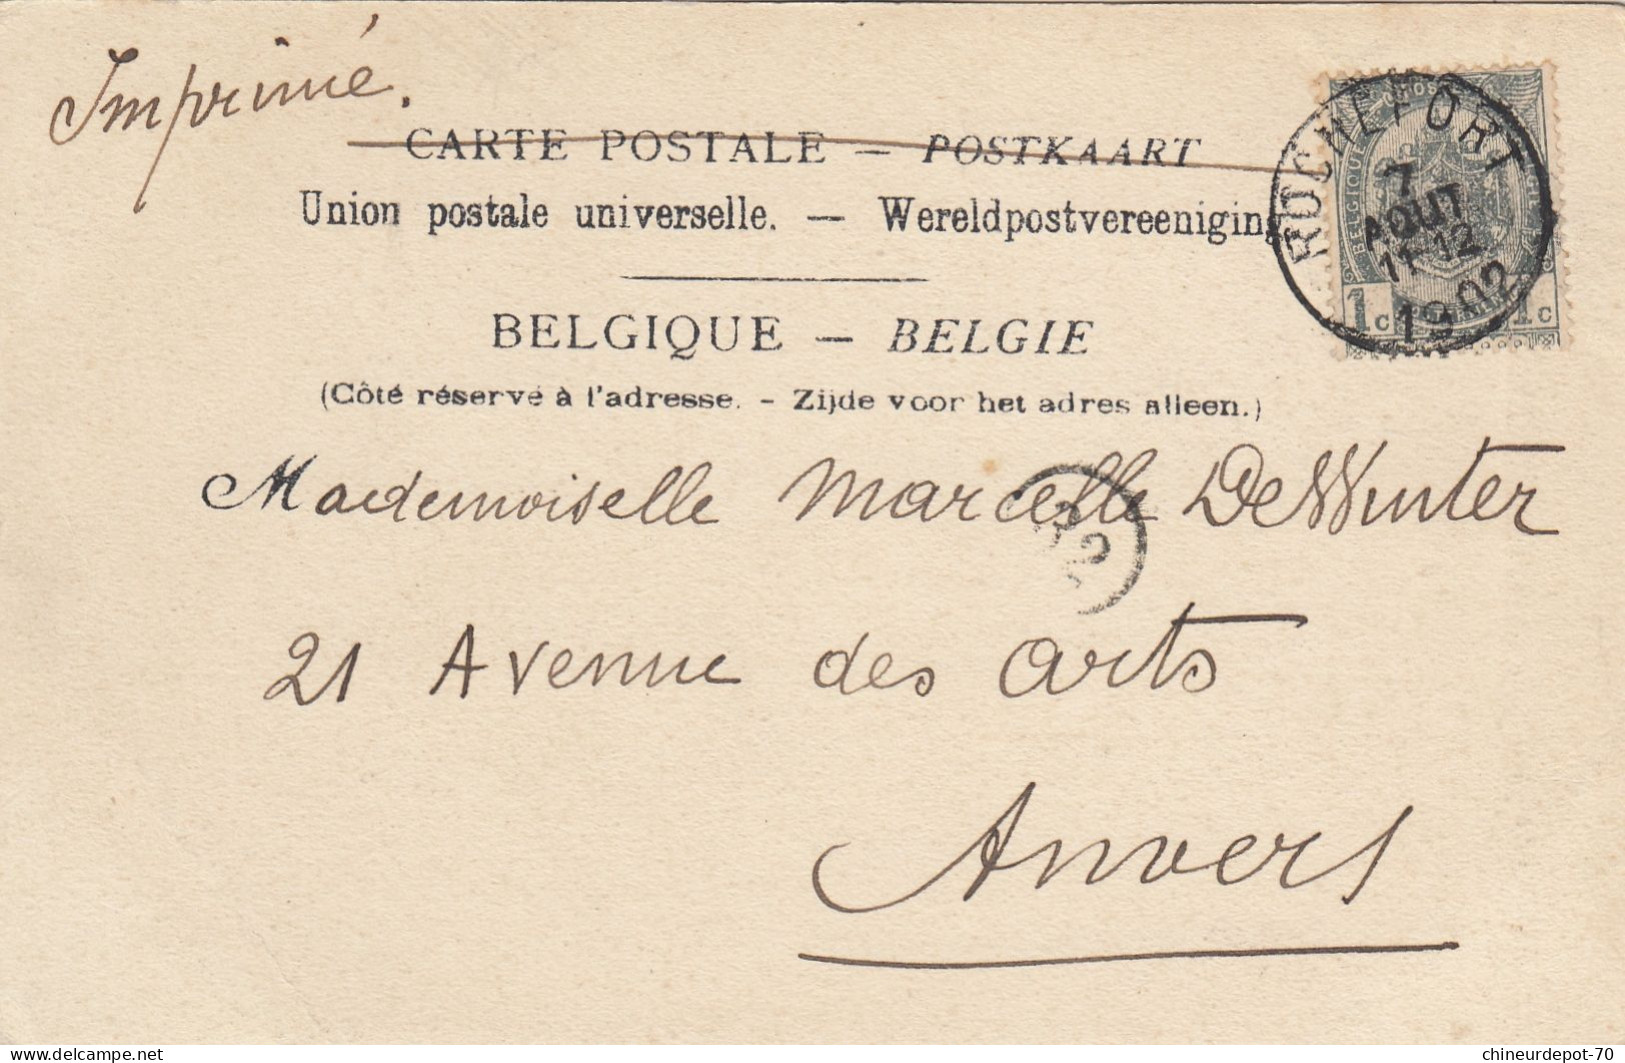 Imprimé.
CARTE POSTALE — POSTKAART
Union postale universelle. — Wereldpostvereeniging
BELGIQUE — BELGIE
(Côté réservé à l'adresse. - Zijde voor het adres alleen.)
ROCHEFORT
7
AOUT
11-12
1902
BELGIQUE
1c 1c
Mademoiselle Marcelle DeWinter
21 Avenue des arts
Anvers
delcampe.net
chineurdepot-70